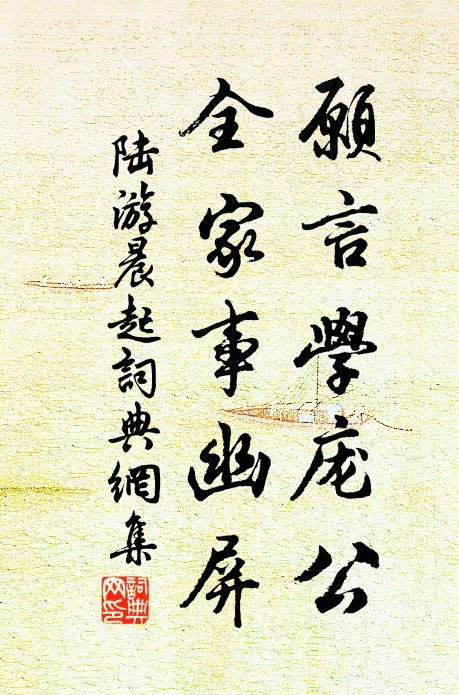 願言學庞公
全家事幽屏
陆游晨起詞典網集
詞典
网印